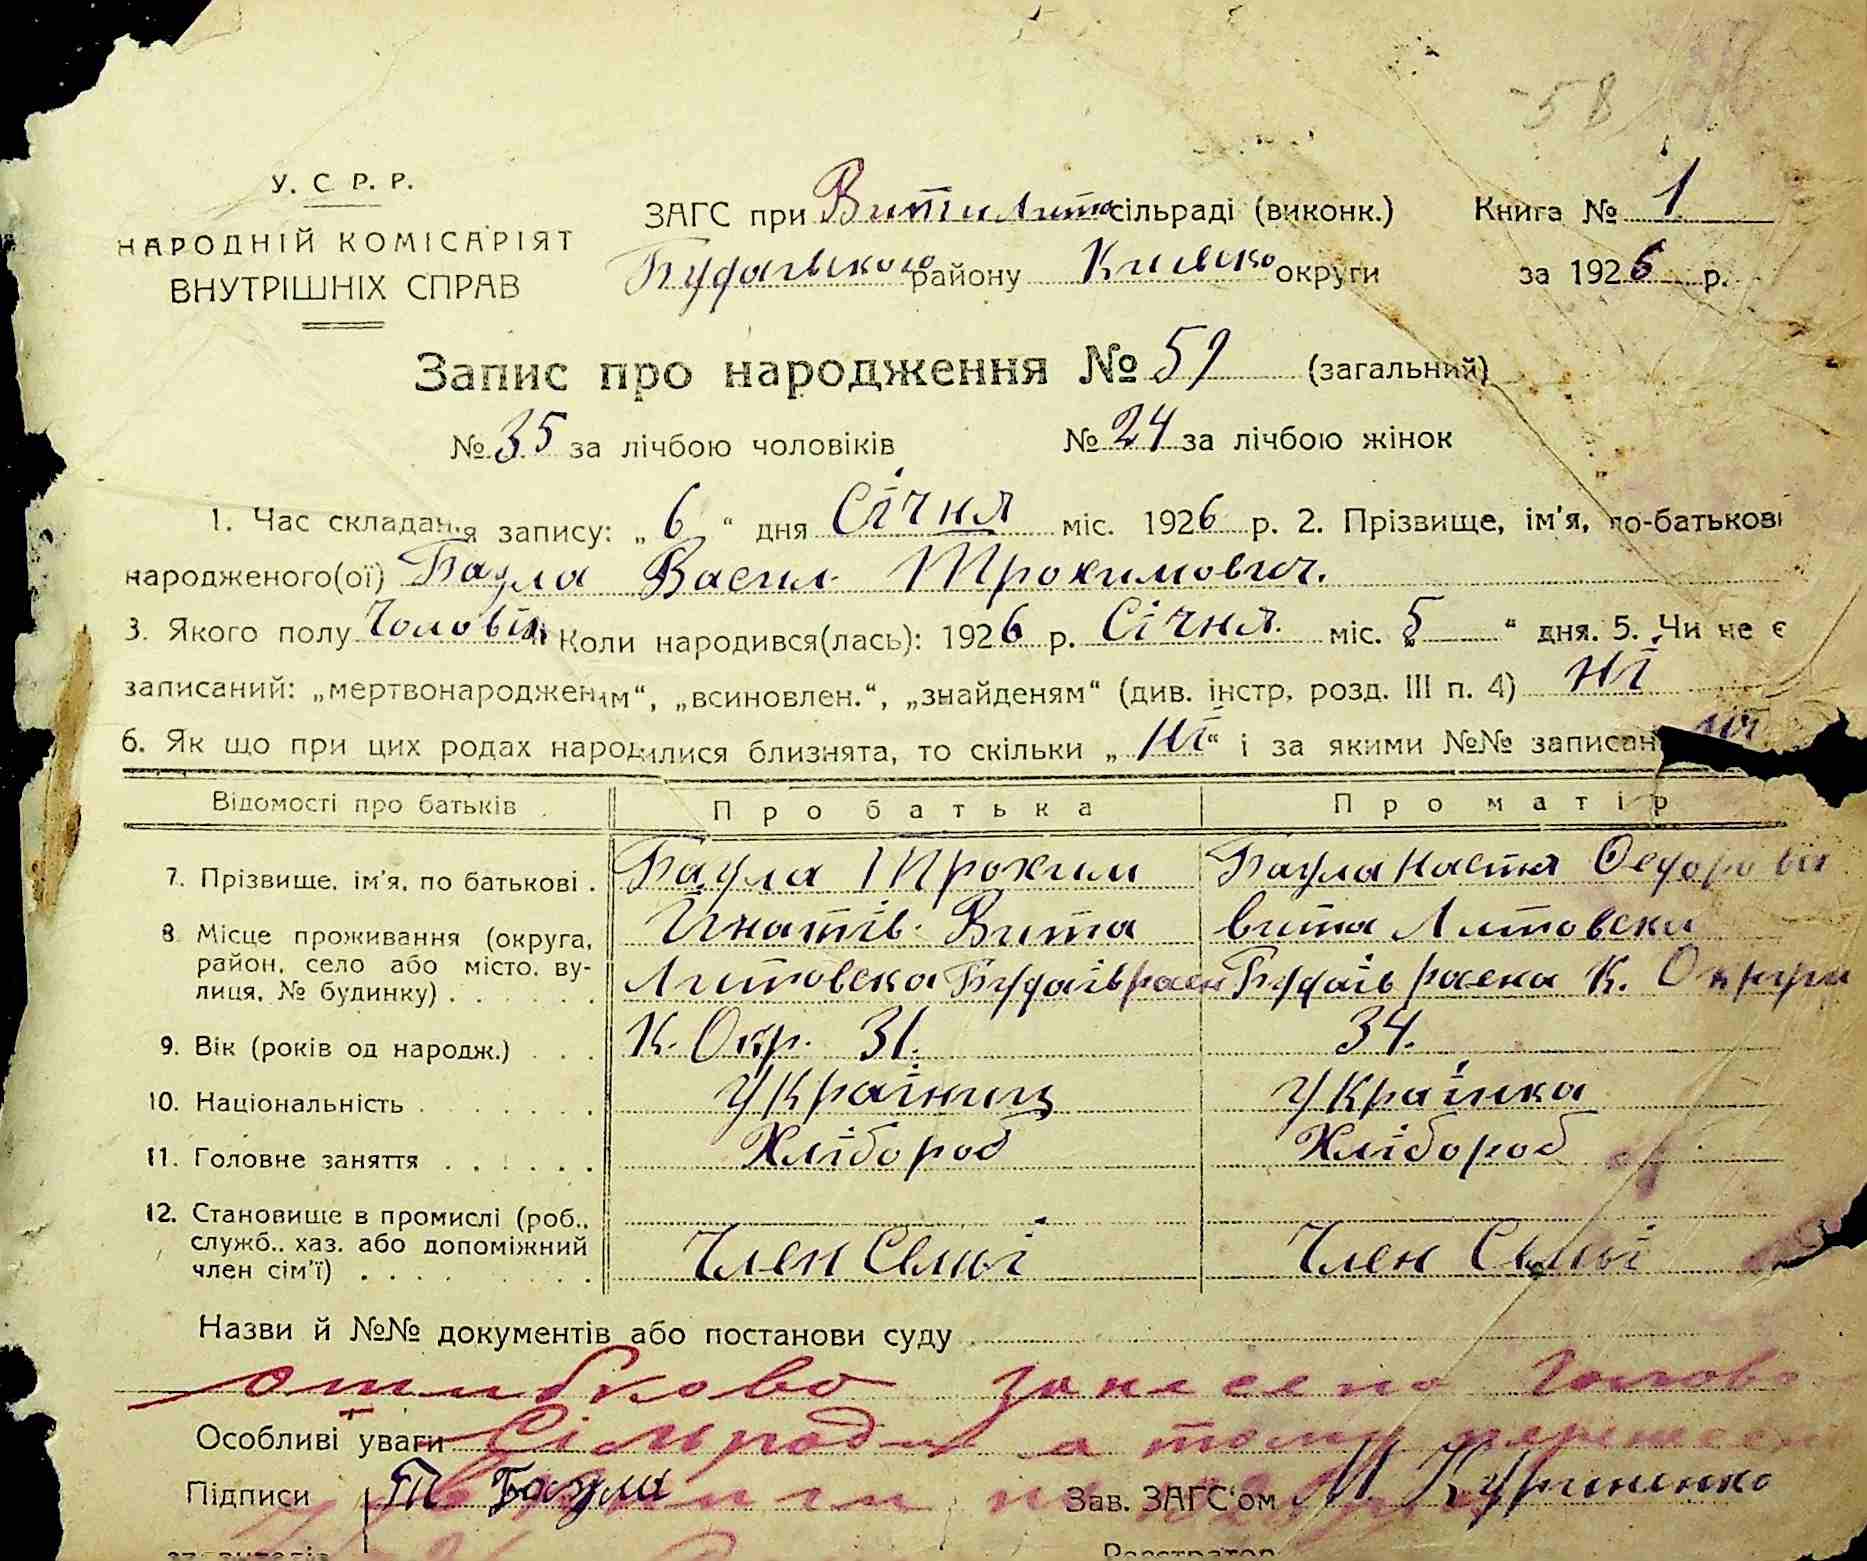 -58
У. С Р. Р.
НАРОДНІЙ КОМІСАРІЯТ
ВНУТРІШНІХ СПРАВ
ЗАГС при Вита Лито сільраді (виконк.)
Книга № 1
Будаївського району Києвсько округи
за 1926 р.
Запис про народження № 59 (загальний)
№ 35 за лічбою чоловіків
№ 24 за лічбою жінок
1. Час складання запису: „ 6 “ дня Січня міс. 1926 р. 2. Прізвище, ім'я, по-батькові
народженого(ої) Баула Васил Трохимович.
3. Якого полу Чоловік Коли народився(лась): 1926 р. Січня міс. 5 “ дня. 5. Чи не є
записаний: „мертвонародженим“, „всиновлен.“, „знайденям“ (див. інстр. розд. III п. 4) ні
6. Як що при цих родах народилися близнята, то скільки „ ні “ і за якими №№ записан ні
Відомості про батьків
Про батька
Про матір
7. Прізвище, ім'я, по батькові . Баула Трохим Баула Настя Федорова
8. Місце проживання (округа, Игнатів. Вита вита Литовска
район, село або місто, ву-
лиця, № будинку) . . . . . . Литовска Будаїв раен Будаїв раена К. Округи
9. Вік (років од народж.) . . . К. Окр. 31. 34.
10. Національність . . . . . . . Українец Українка
11. Головне заняття . . . . . . Хлібороб Хлібороб
12. Становище в промислі (роб.,
служб., хаз. або допоміжний
член сім'ї) . . . . . . . . Член Семьі Член Семьі
Назви й №№ документів або постанови суду
ошибково занесено голово
Особливі уваги Сільради а тому
Підписи Т Баула
Зав. ЗАГС'ом М. Куриненко